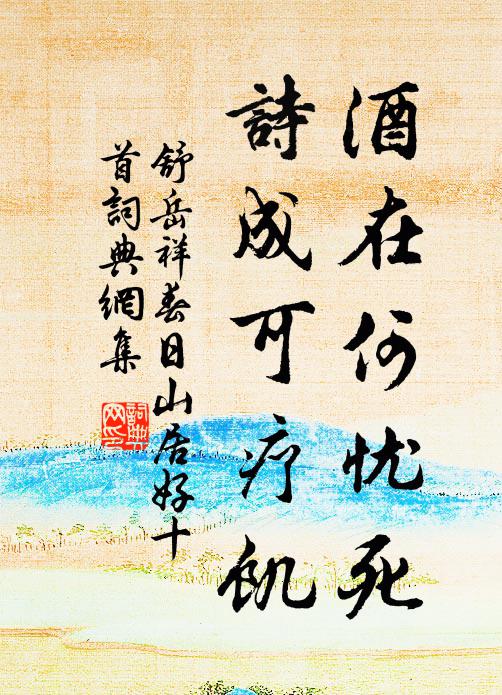 酒在何忧死
詩成可疗飢
舒岳祥春日山居好十
首詞典網集
詞典
网印